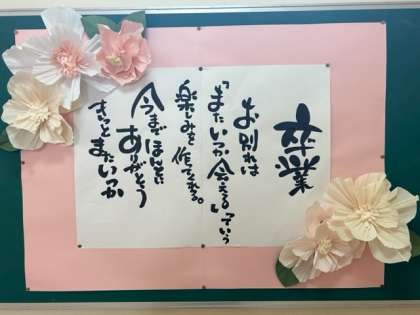 卒業
お別れは
「またいつか会える」っていう
楽しみを作ってくれる。
今までほんとに
ありがとう
きっとまたいつか